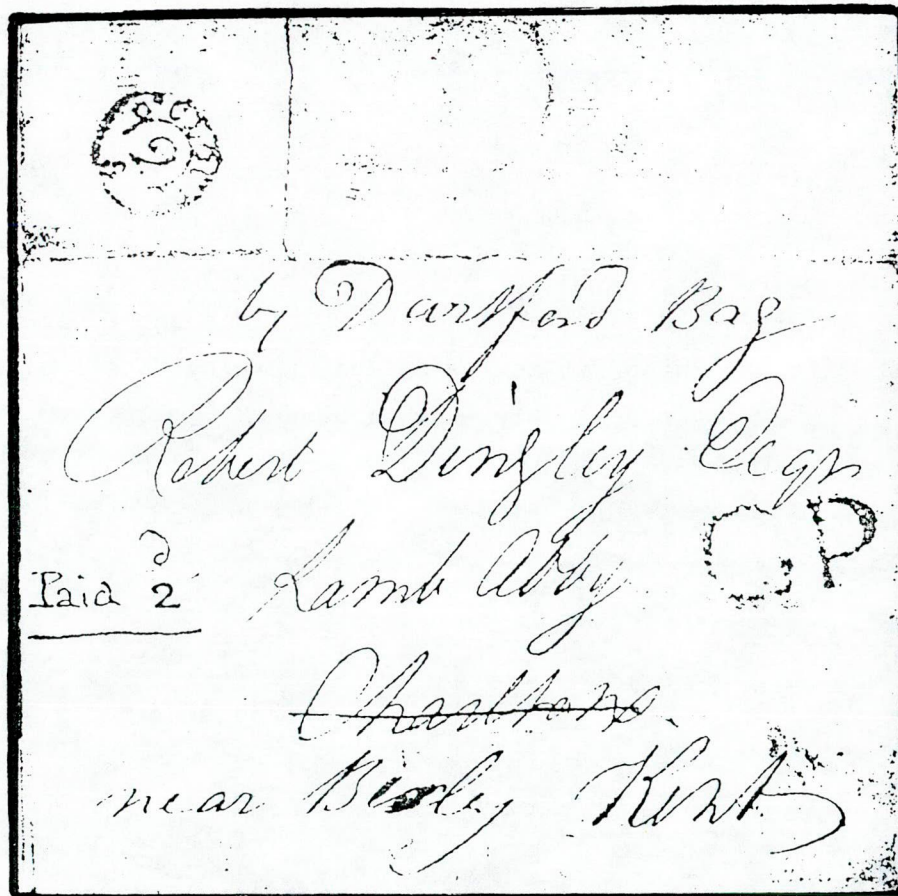 2
by Dartford Bag
Robert Dingley Esqr
GP
Lamb Abby
Paid 2d
near Bexley Kent